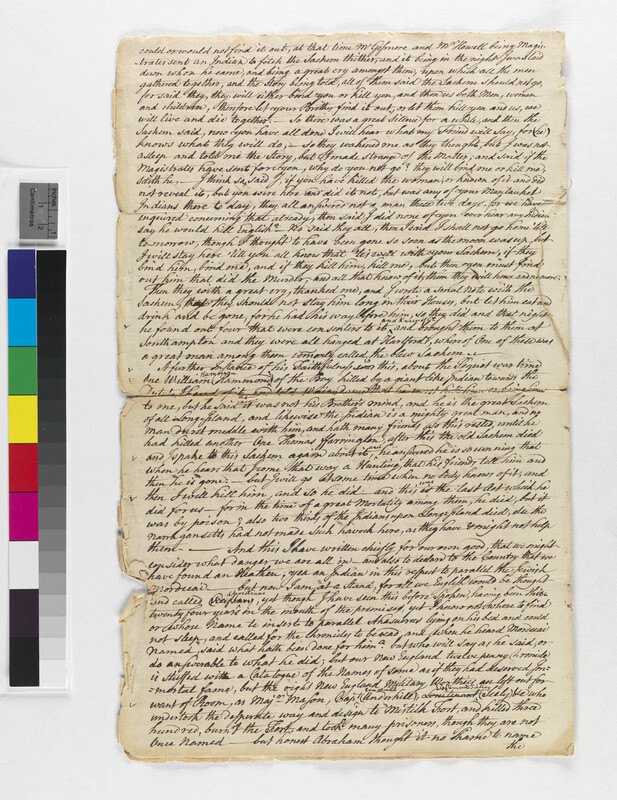 could or would not find it out, at that time Mr Gosmore and Mr Howell being Magis-
trates sent an Indian to fetch the Sachem thither, and it being in the night I was laid
down when he came, and being a great cry amongst them, upon which all the men
gathered together, and the Story being told, all of them said the Sachem should not go,
for said they, they will either bind you or kill you, and then us both Men, women
and children, therefore let your Brother find it out, or let them kill you and us, we
will live and die together. — So there was a great silence for a while, and then the
Sachem said, now you have all done I will hear what my Friend will Say, for (he)
knows what they will do, — so they wakened me as they thought, but I was not
asleep and told me the Story, but I made strange of the Matter, and said if the
Magistrates have sent for you, why do you not go? they will bind me or kill me
saith he, — I think so, said I if you have killed the woman or known of it and did
not reveal it, but you were here and did it not, but was any of your Mantauket
Indians there to day, they all answered not a man these two days, for we have
enquired concerning that already, then said I did none of you ever hear any Indian
say he would kill English? No said they all, then I said I shall not go home 'till
tomorrow, though I thought to have been gone so soon as the moon was up, but
I will stay here 'till you all know that its well with your Sachem, if they
bind him, bind me, and if they kill him, kill me, but then you must find
out him that did the Murder and all that know of it, them they will have and no more.
Then they with a great cry thanked me, and I wrote a small Note with the
Sachem, that they should not stay him long in their Houses, but let him eat and
drink and be gone, for he had his way before him, so they did and that night
he found out four that were consenters to it and knew of it, and brought them to them at
Southampton and they were all hanged at Hartford, whereof one of these was
a great man among them commonly called the blew Sachem. —
A further instance of his Faithfulness is this, about the Pequot war time
one William Hammond of the Bay killed by a giant like Indian towards the
to me, but he said it was not his Brother's mind, and he is the great Sachem
of all Long Island, and likewise the Indian is a mighty great man, and no
man durst meddle with him, and hath many friends, so this rested until he
had killed another One Thomas Farrington, after this the old Sachem died
and I spake to this Sachem again about it, he answered he is so cunning that
when he hears that I come that way a Hunting, that his Friends tell him and
then he is gone. — but I will go at some time when no Body knows of it, and
then I will kill him, and so he did — and this was the last Act which he
did for us — for in the time of a great Mortality among them, he died, but it
was by poison; also two thirds of the Indians upon Long Island died, els the
narhgansetts had not made Such havock here, as they have & might not help
them. — And this I have written chiefly for our own good, that we might
consider what danger we are all in — and also to declare to the Country that we
have found an Heathen, yea an Indian in this respect to parallel the Jewish
Mordecai — but now I am at a Stand, for all we English would be thought
and called Christians, yet though I have seen this before spoken, having been these
twenty four years in the mouth of the premises, yet I know not where to find
or whose Name to insert to parallel Ahasuerus lying on his bed and could
not sleep, and called for the chronicles to be read, and when he heard Mordecai
Named, said what hath been done for him? but who will say as he said, or
do answerable to what he did, but our New England twelve penny Chronicle
is stuffed with a Catalogue of the Names of some as if they had deserved Im-
-mortal fame, but the right New England Military Worthies are left out for
want of Room, as Majr Mason, Capt Underhill, Lieutenant Sielly &c who
undertook the desperate way and design to Mistick Fort, and killed three
hundred, burnt the Fort, and took many prisoners, though they are not
once Named — but honest Abraham thought it no shame to name
the